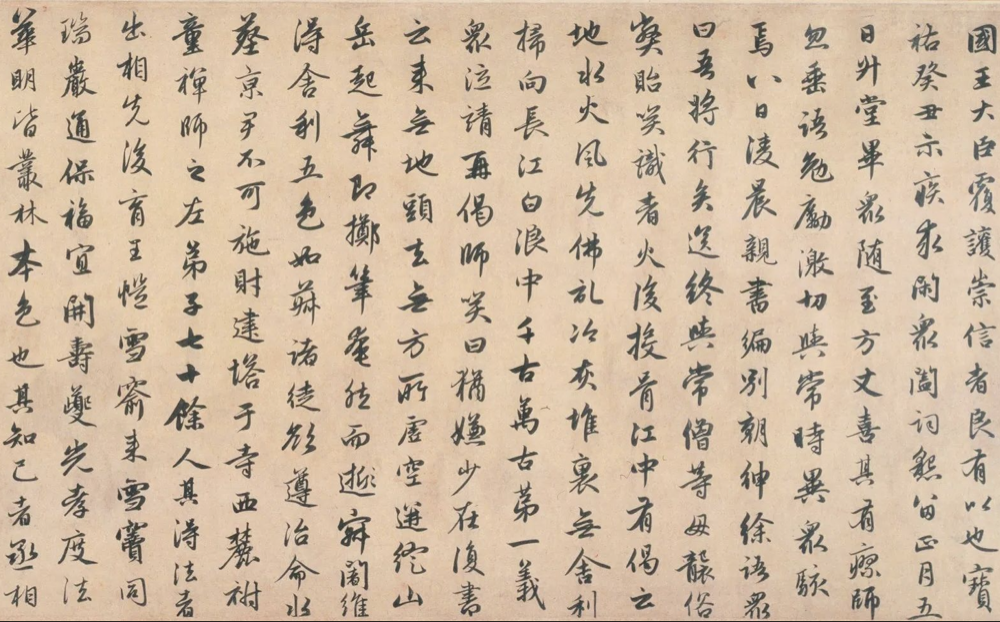 國王大臣覆護崇信者良有以也寶
祐癸丑示疾求閑衆闔詞懇留正月五
日升堂畢衆随至方丈喜其有瘳師
忽垂語勉勵激切與常時異衆駭
焉八日淩晨親書徧別朝紳徐語衆
曰吾將行矣送終與常僧等毋襲俗
獘貽笑識者火後投骨江中有偈云
地水火風先佛記冷灰堆裏無舍利
掃向長江白浪中千古萬古第一義
衆泣請再偈師笑曰猶嫌少在復書
云来無地頭去無方所虚空迸綻山
岳起舞即擲筆奄然而逝闍維
得舍利五色如諸徒欲遵治命水
葬京尹不可施財建塔于寺西麓祔
童禪師之左弟子七十餘人其得法者
出相先後育王愷雪来雪竇同
瑞巖通保福宜開壽夔先孝度法
華明皆叢林本色也其知己者丞相